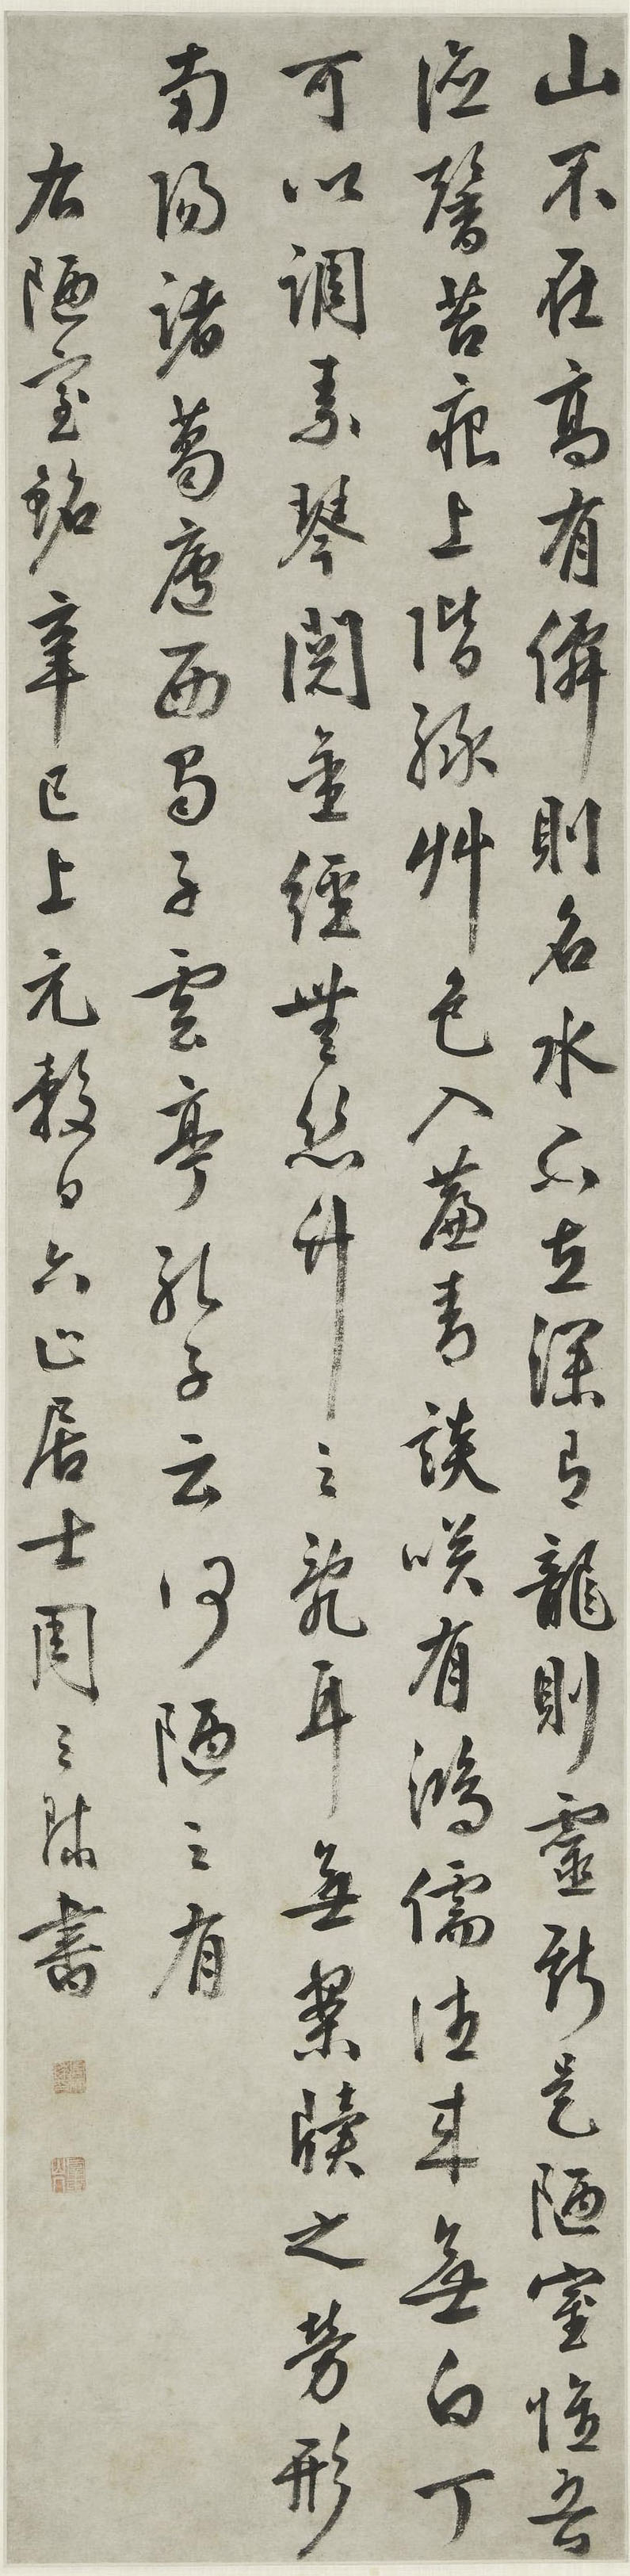 山不在高有僊則名水不在深有龍則靈斯是陋室惟吾
德馨苔痕上階綠艸色入簾青談咲有鴻儒往來無白丁
可以調素琴閱金經無絲竹之亂耳無案牘之勞形
南陽諸葛廬西蜀子雲亭孔子云何陋之有
右陋室銘辛巳上元穀日六止居士周之 書